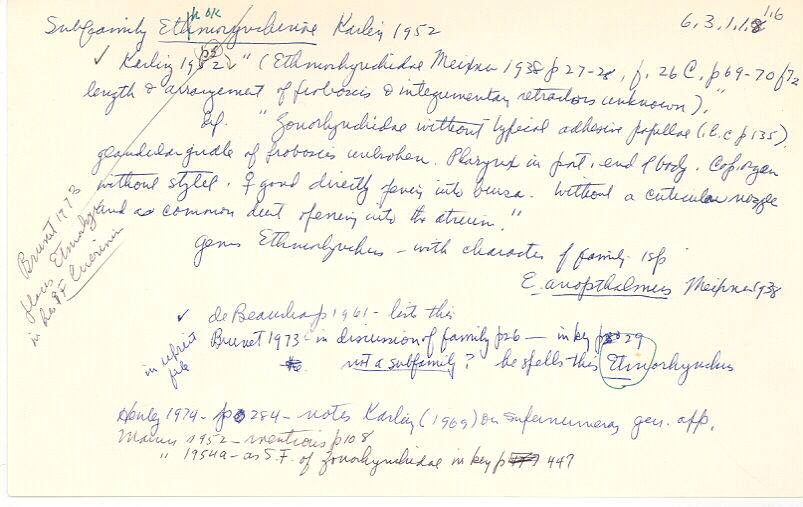 h OK
Subfamily Ethmorhynchinae Karling 1952
6.3.1.1.8 1.6
✓ Karling 1952 ✓ " (Ethmorhynchidae Meixner 1938 p 27-28, f. 26 C, p 69-70 f 72
length & arrangement of proboscis & integumentary retractors unknown)."
Def. " Gnorhynchidae without typical adhesive papillae (i.e. c p 135).
glandular girdle of proboscis unbroken. Pharynx in post. end of body. Cop. organ
without stylet. ♀ gonod directly opening into bursa. Without a cuticular nozzle
and a common duct opening into the atrium."
Genus Ethmorhynchus - with character of family 1 sp
E. anopthalmus Meixner 1938
Brunet 1973
places Etmorhyn
in his SF Cicerinin
✓ de Beauchamp 1961 - list this
in reprint file
Brunet 1973 - in discussion of family p 26 - in key p 29
not a subfamily? he spells this Etmorhynchus
Henley 1974 - p 284 - notes Karling (1969) on supernumerary gen. app.
Marcus 1952 - mentions p 108
" 1954a - as S.F. of Gnorhynchidae in key p 447